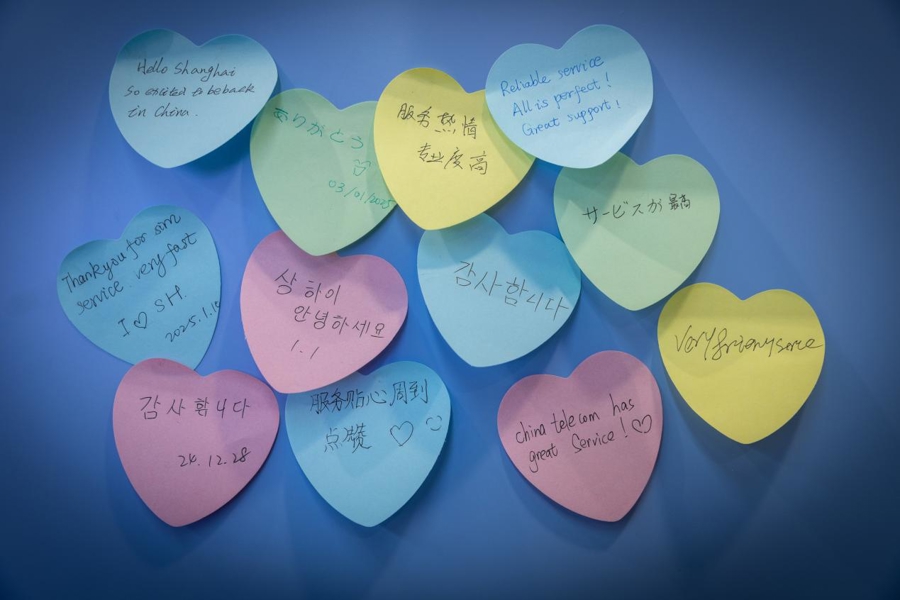 Hello Shanghai
So excited to be back
in China.
ありがとう
03/01/2025
服务热情
专业度高
Reliable service
All is perfect!
Great support!
サービスが最高
Thank you for sim
service. very fast
I ♡ SH.
2025.1.1
상하이
안녕하세요
1.1
감사합니다
Very
감사합니다
24.12.28
服务贴心周到
点赞 ♡
china telecom has
great Service! ♡